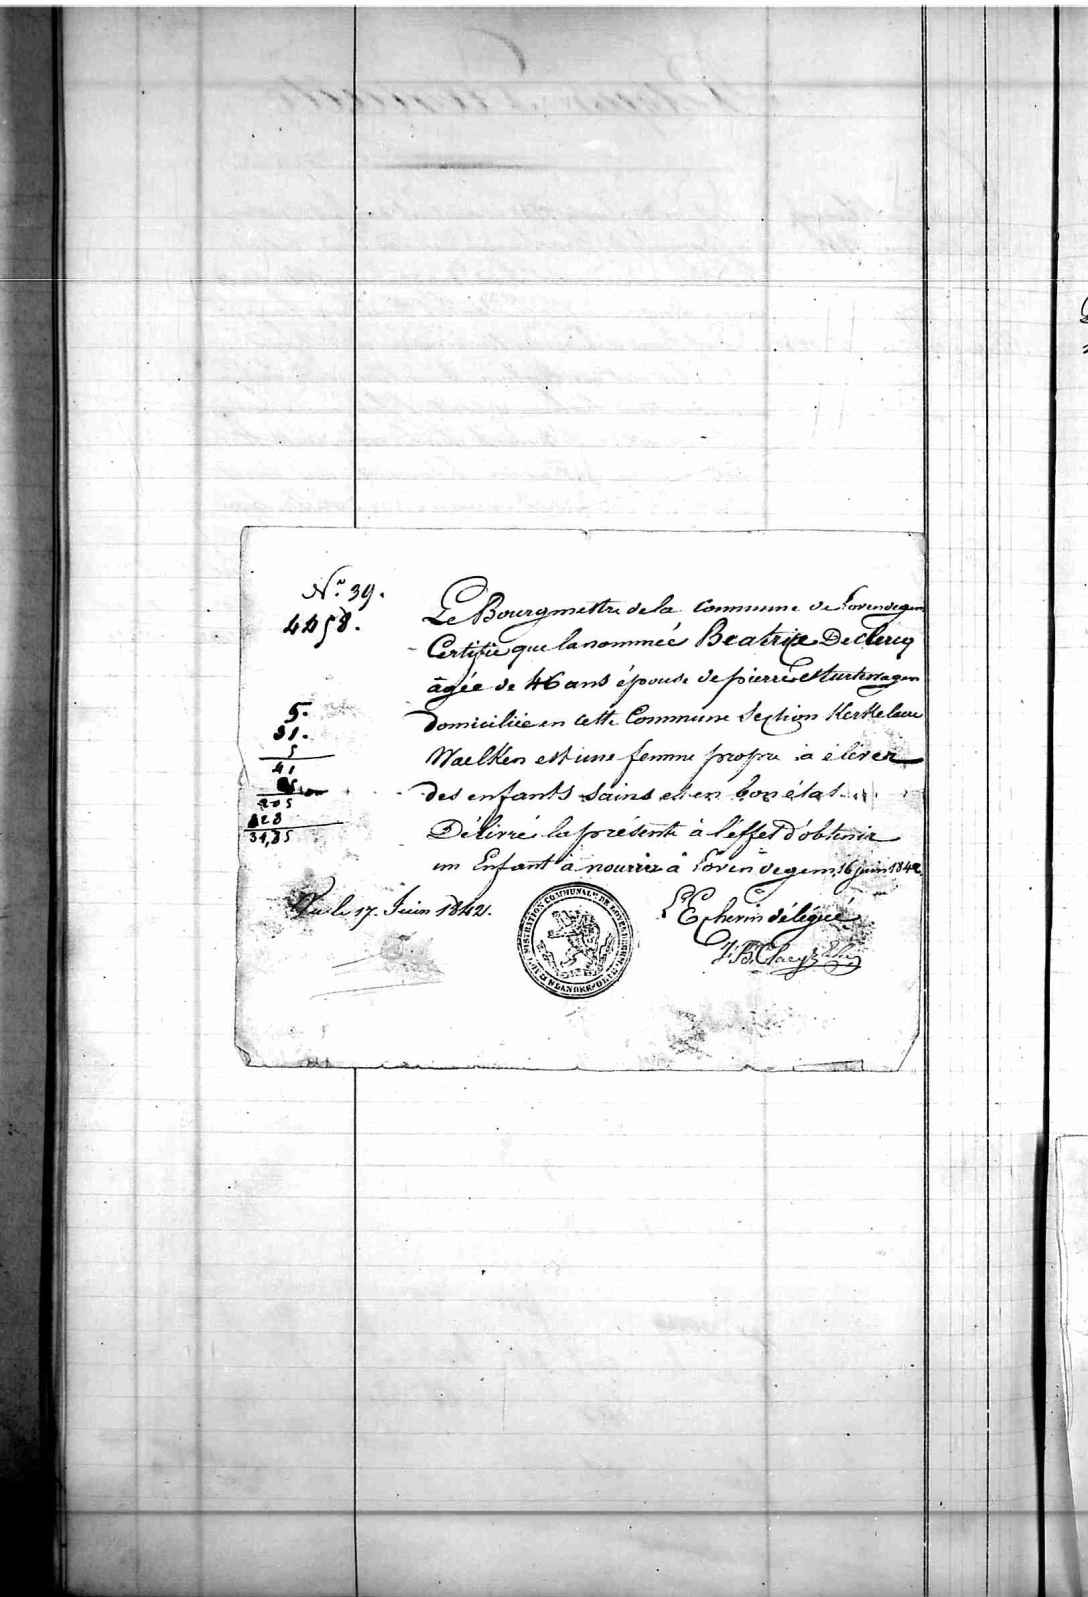 N.º 39.
4458.
Le Bourgmestre de la Commune de Lovendegem
Certifie que la nommée Beatrix Declercq
agée de 46 ans épouse de pierre
domiciliée en cette Commune Section Kerkelare
Waelken est une femme propre à élever
des enfants sains et en bon état.
Délivré la présente à l'effet d'obtenir
un Enfant à nourrir à Lovendegem, 16 juin 1842.
5.
31.
5
41
205
328
34,85
Vu le 17. Juin 1842.
L'Echevin délégué
J. B. Claeys
ADMINISTRATION COMMUNALE DE LOVENDEGEM